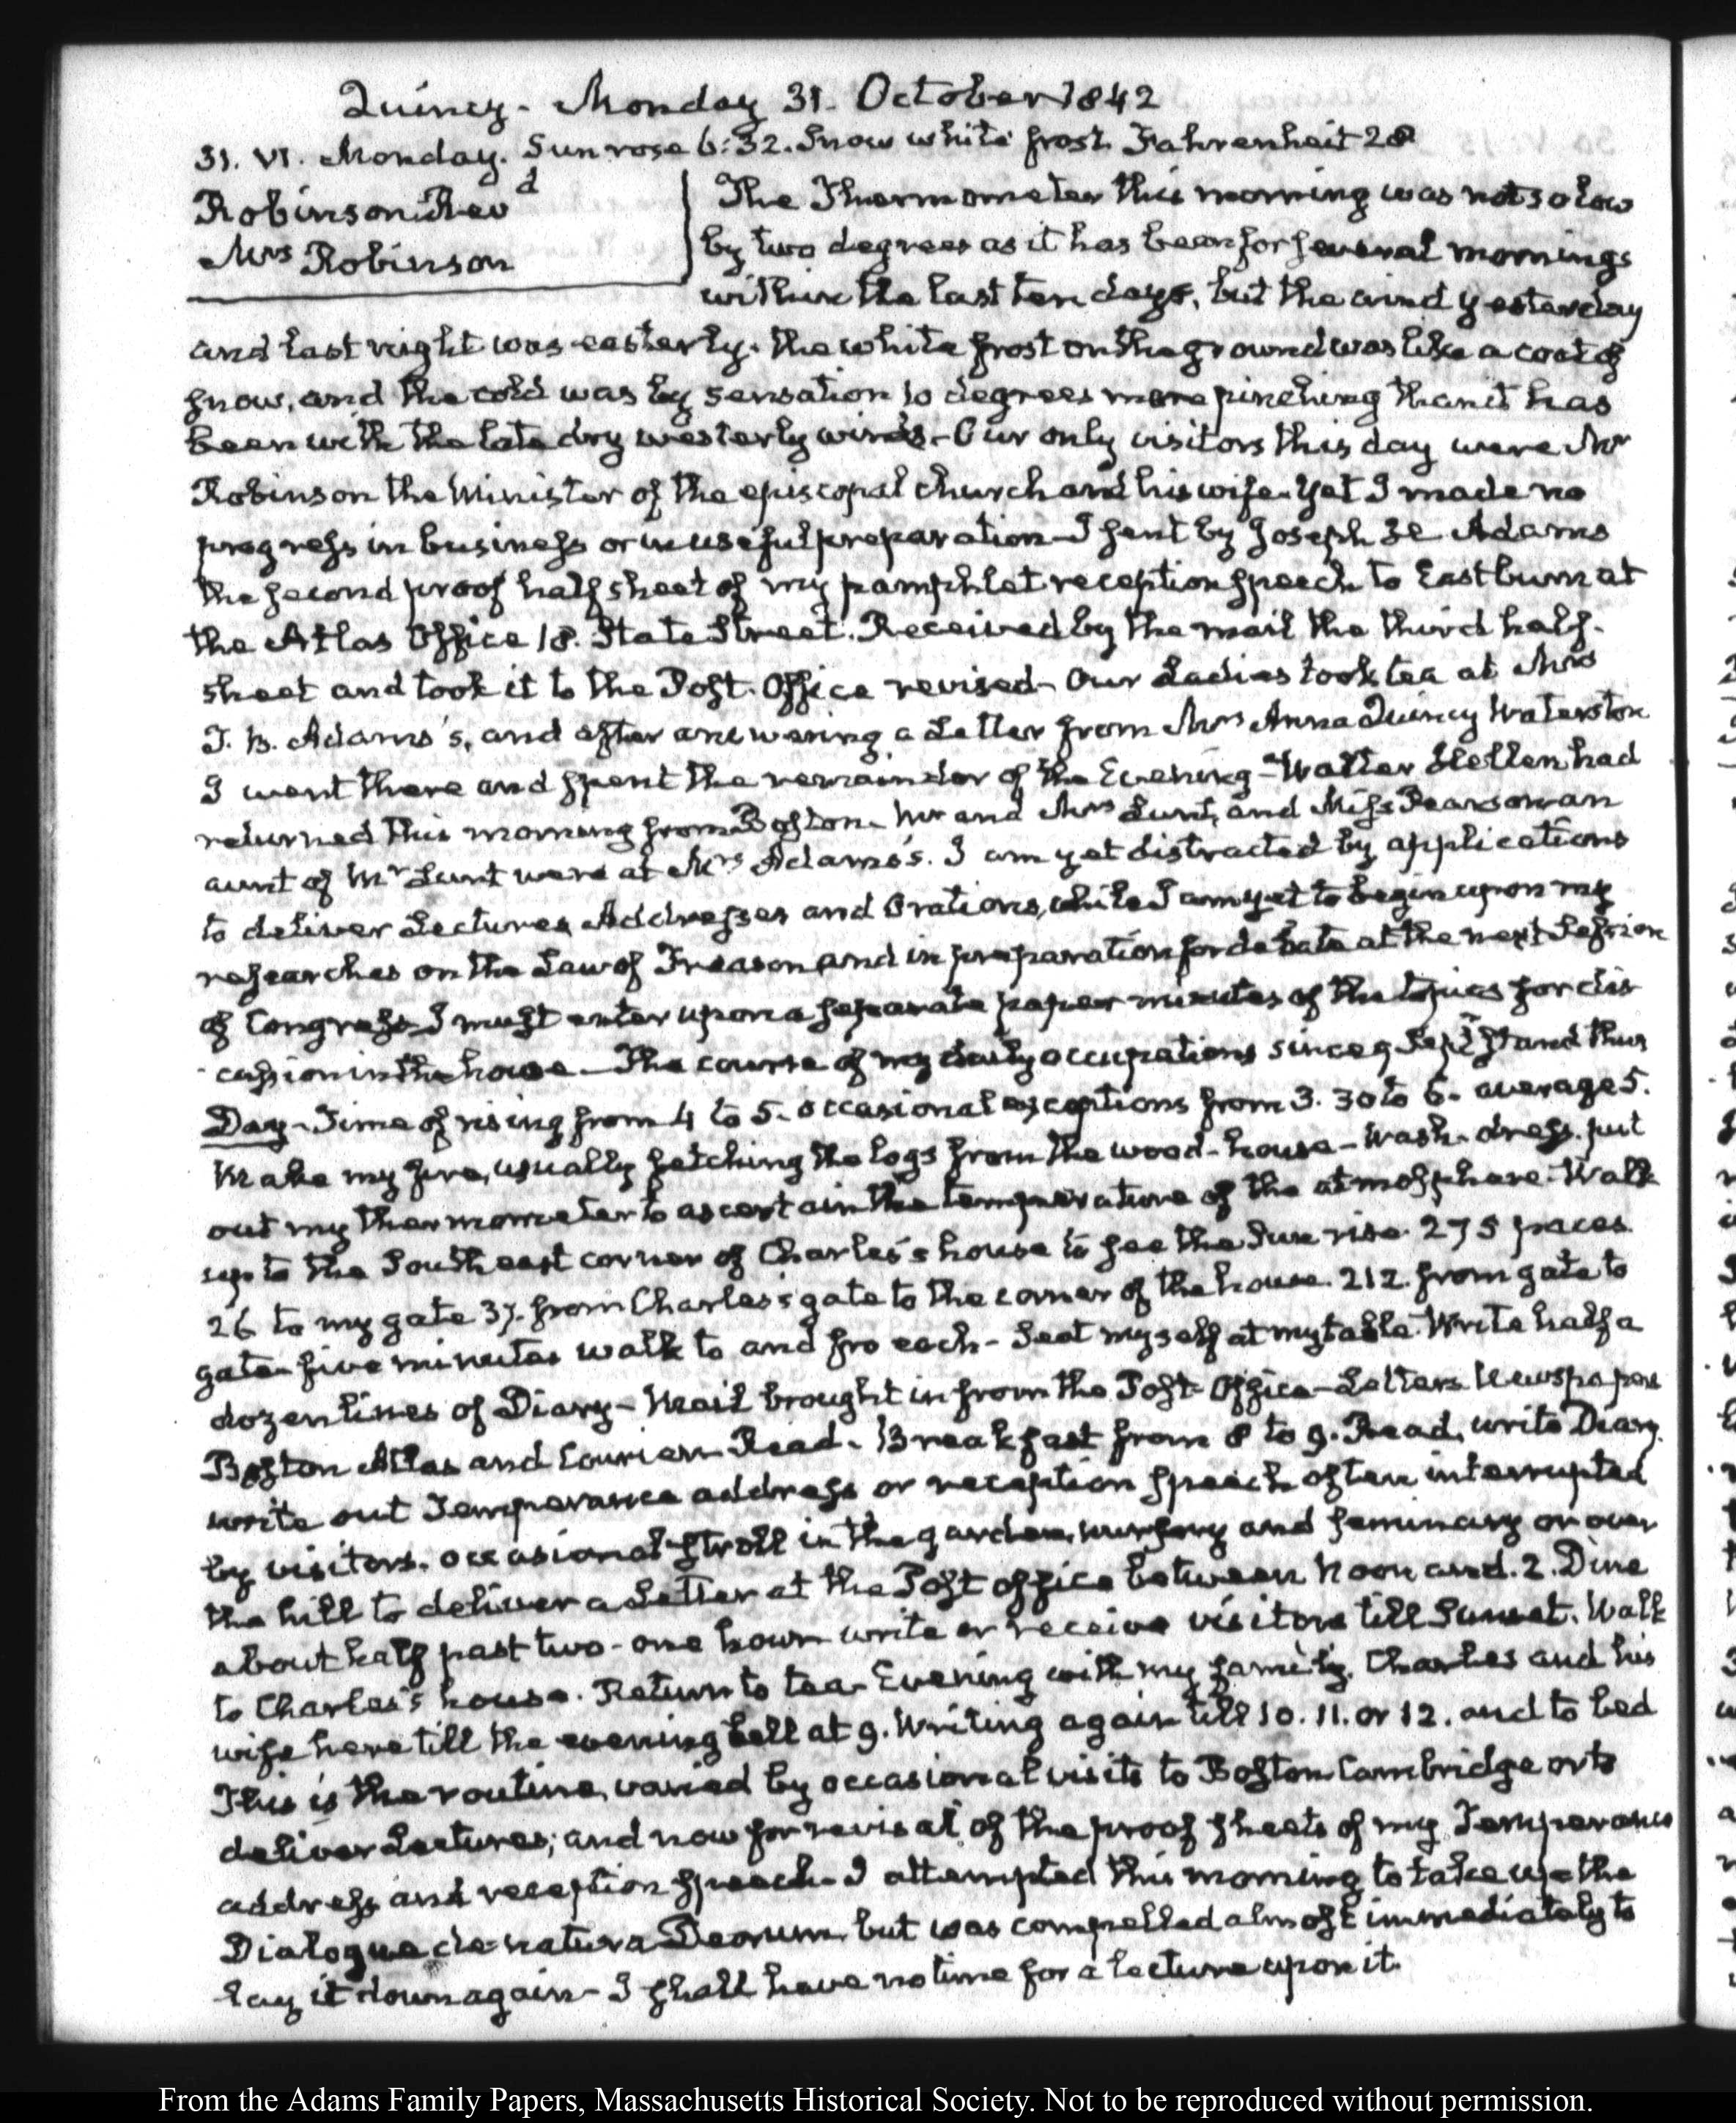 Quincy - Monday 31. October 1842
31. VI. Monday. Sun rose 6:32. Snow white frost Fahrenheit 28
Robinson Revd
Mrs Robinson
The Thermometer this morning was not so low
by two degrees as it has been for several mornings
within the last ten days, but the wind yesterday
and last night was easterly. the white frost on the ground was like a coat of
snow, and the cold was by sensation 10 degrees more pinching than it has
been with the late dry westerly winds - Our only visitors this day were Mr
Robinson the Minister of the episcopal church and his wife. Yet I made no
progress in business or in useful preparation - I sent by Joseph H. Adams
the second proof half sheet of my pamphlet reception speech to Eastburn at
the Atlas Office 18. State Street. Received by the mail the third half-
sheet and took it to the Post-Office revised - Our Ladies took tea at Mrs
T. B. Adams's, and after answering a Letter from Mrs Anna Quincy Waterston
I went there and spent the remainder of the Evening - Walter Hellen had
returned this morning from Boston. Mr and Mrs Lunt, and Miss Pearson an
aunt of Mr Lunt were at Mrs Adams's. I am yet distracted by applications
to deliver Lectures Addresses and Orations, while I am yet to begin upon my
researches on the Law of Treason and in preparation for debate at the next Session
of Congress - I must enter upon a separate paper minutes of the topics for dis
-cussion in the house - The course of my daily occupations since 9 Septr stand thus
Day - Time of rising from 4 to 5. occasional exceptions from 3.30 to 6. average 5.
Make my fire, usually fetching the logs from the wood-house - Wash - dress. put
out my thermometer to ascertain the temperature of the atmosphere - Walk
up to the Southeast corner of Charles's house to see the Sun rise. 275 paces.
26 to my gate 37. from Charles's gate to the corner of the house. 212. from gate to
gate - five minutes walk to and fro each - Seat myself at my table. Write half a
dozen lines of Diary - Mail brought in from the Post-Office - Letters Newspapers
Boston Atlas and Courier - Read. Breakfast from 8 to 9. Read, write Diary.
write out Temperance address or reception speech often interrupted
by visitors. occasional stroll in the garden, nursery and seminary or over
the hill to deliver a Letter at the Post office between Noon and 2. Dine
about half past two - one hour write or receive visitors till Sunset. Walk
to Charles's house. Return to tea - Evening with my family. Charles and his
wife here till the evening bell at 9. Writing again till 10. 11. or 12. and to bed
This is the routine, varied by occasional visits to Boston Cambridge or to
deliver Lectures; and now for revisal of the proof sheets of my Temperance
address and reception speech - I attempted this morning to take up the
Dialogue de natura Deorum, but was compelled almost immediately to
lay it down again - I shall have no time for a lecture upon it.
From the Adams Family Papers, Massachusetts Historical Society. Not to be reproduced without permission.